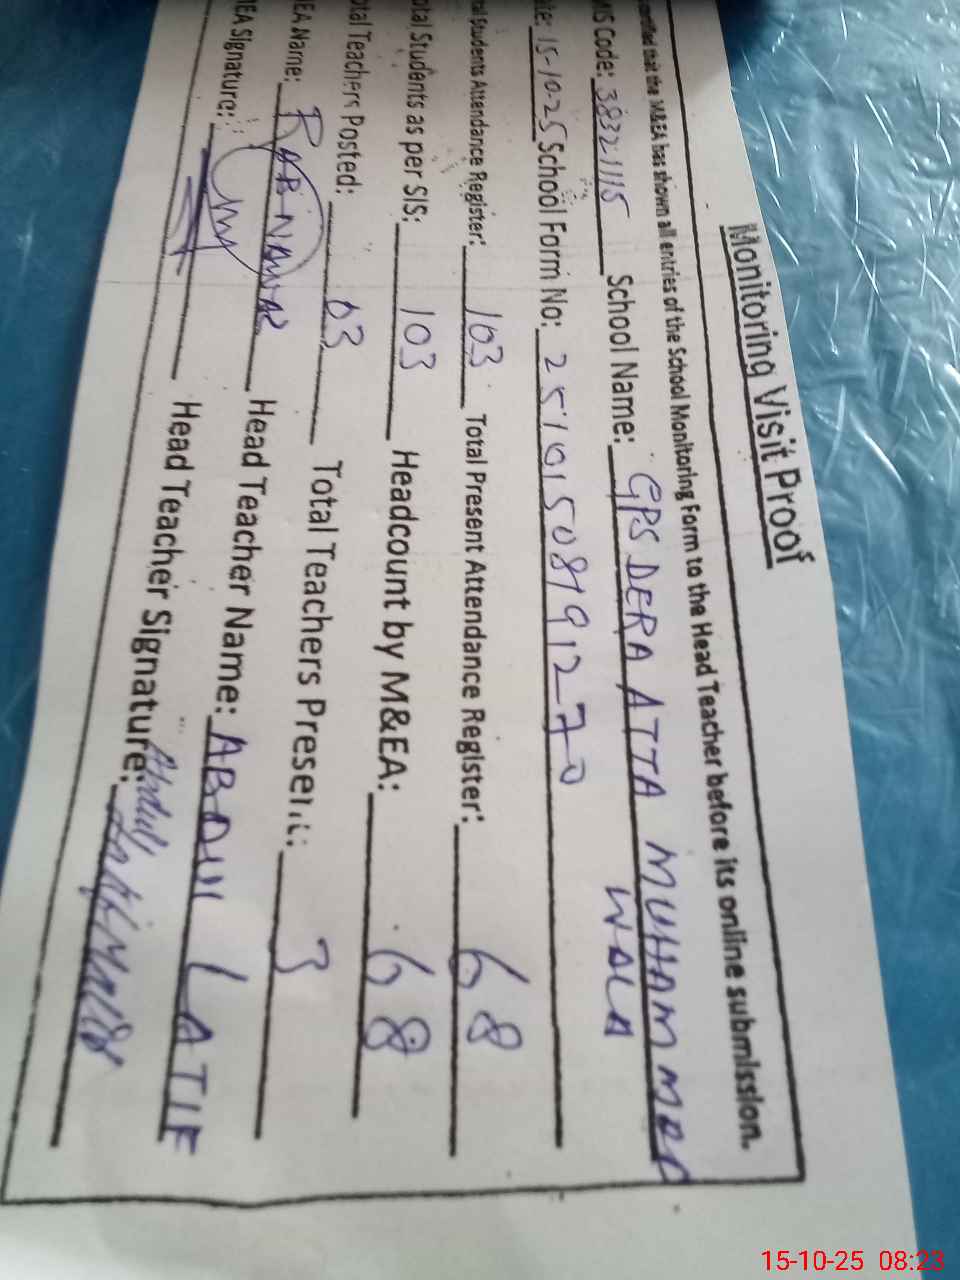 Monitoring Visit Proof
certified that the M&EA has shown all entries of the School Monitoring Form to the Head Teacher before its online submission.
MS Code: 38321115 School Name: GPS DERA ATTA MUHAMMAD
WALA
te: 15-10-25 School Form No: 25101508191270
tal Students Attendance Register: 103 Total Present Attendance Register: 68
otal Students as per SIS: 103 Headcount by M&EA: 68
otal Teachers Posted: 03 Total Teachers Present: 3
EA Name: RABNAWAZ Head Teacher Name: ABDUL LATIF
MEA Signature: Head Teacher Signature: Abdul
15-10-25 08:23